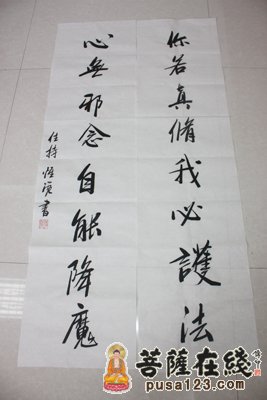 你若真脩我必護法
心無邪念自能降魔
住持悟演書
菩薩在綫
pusa123.com